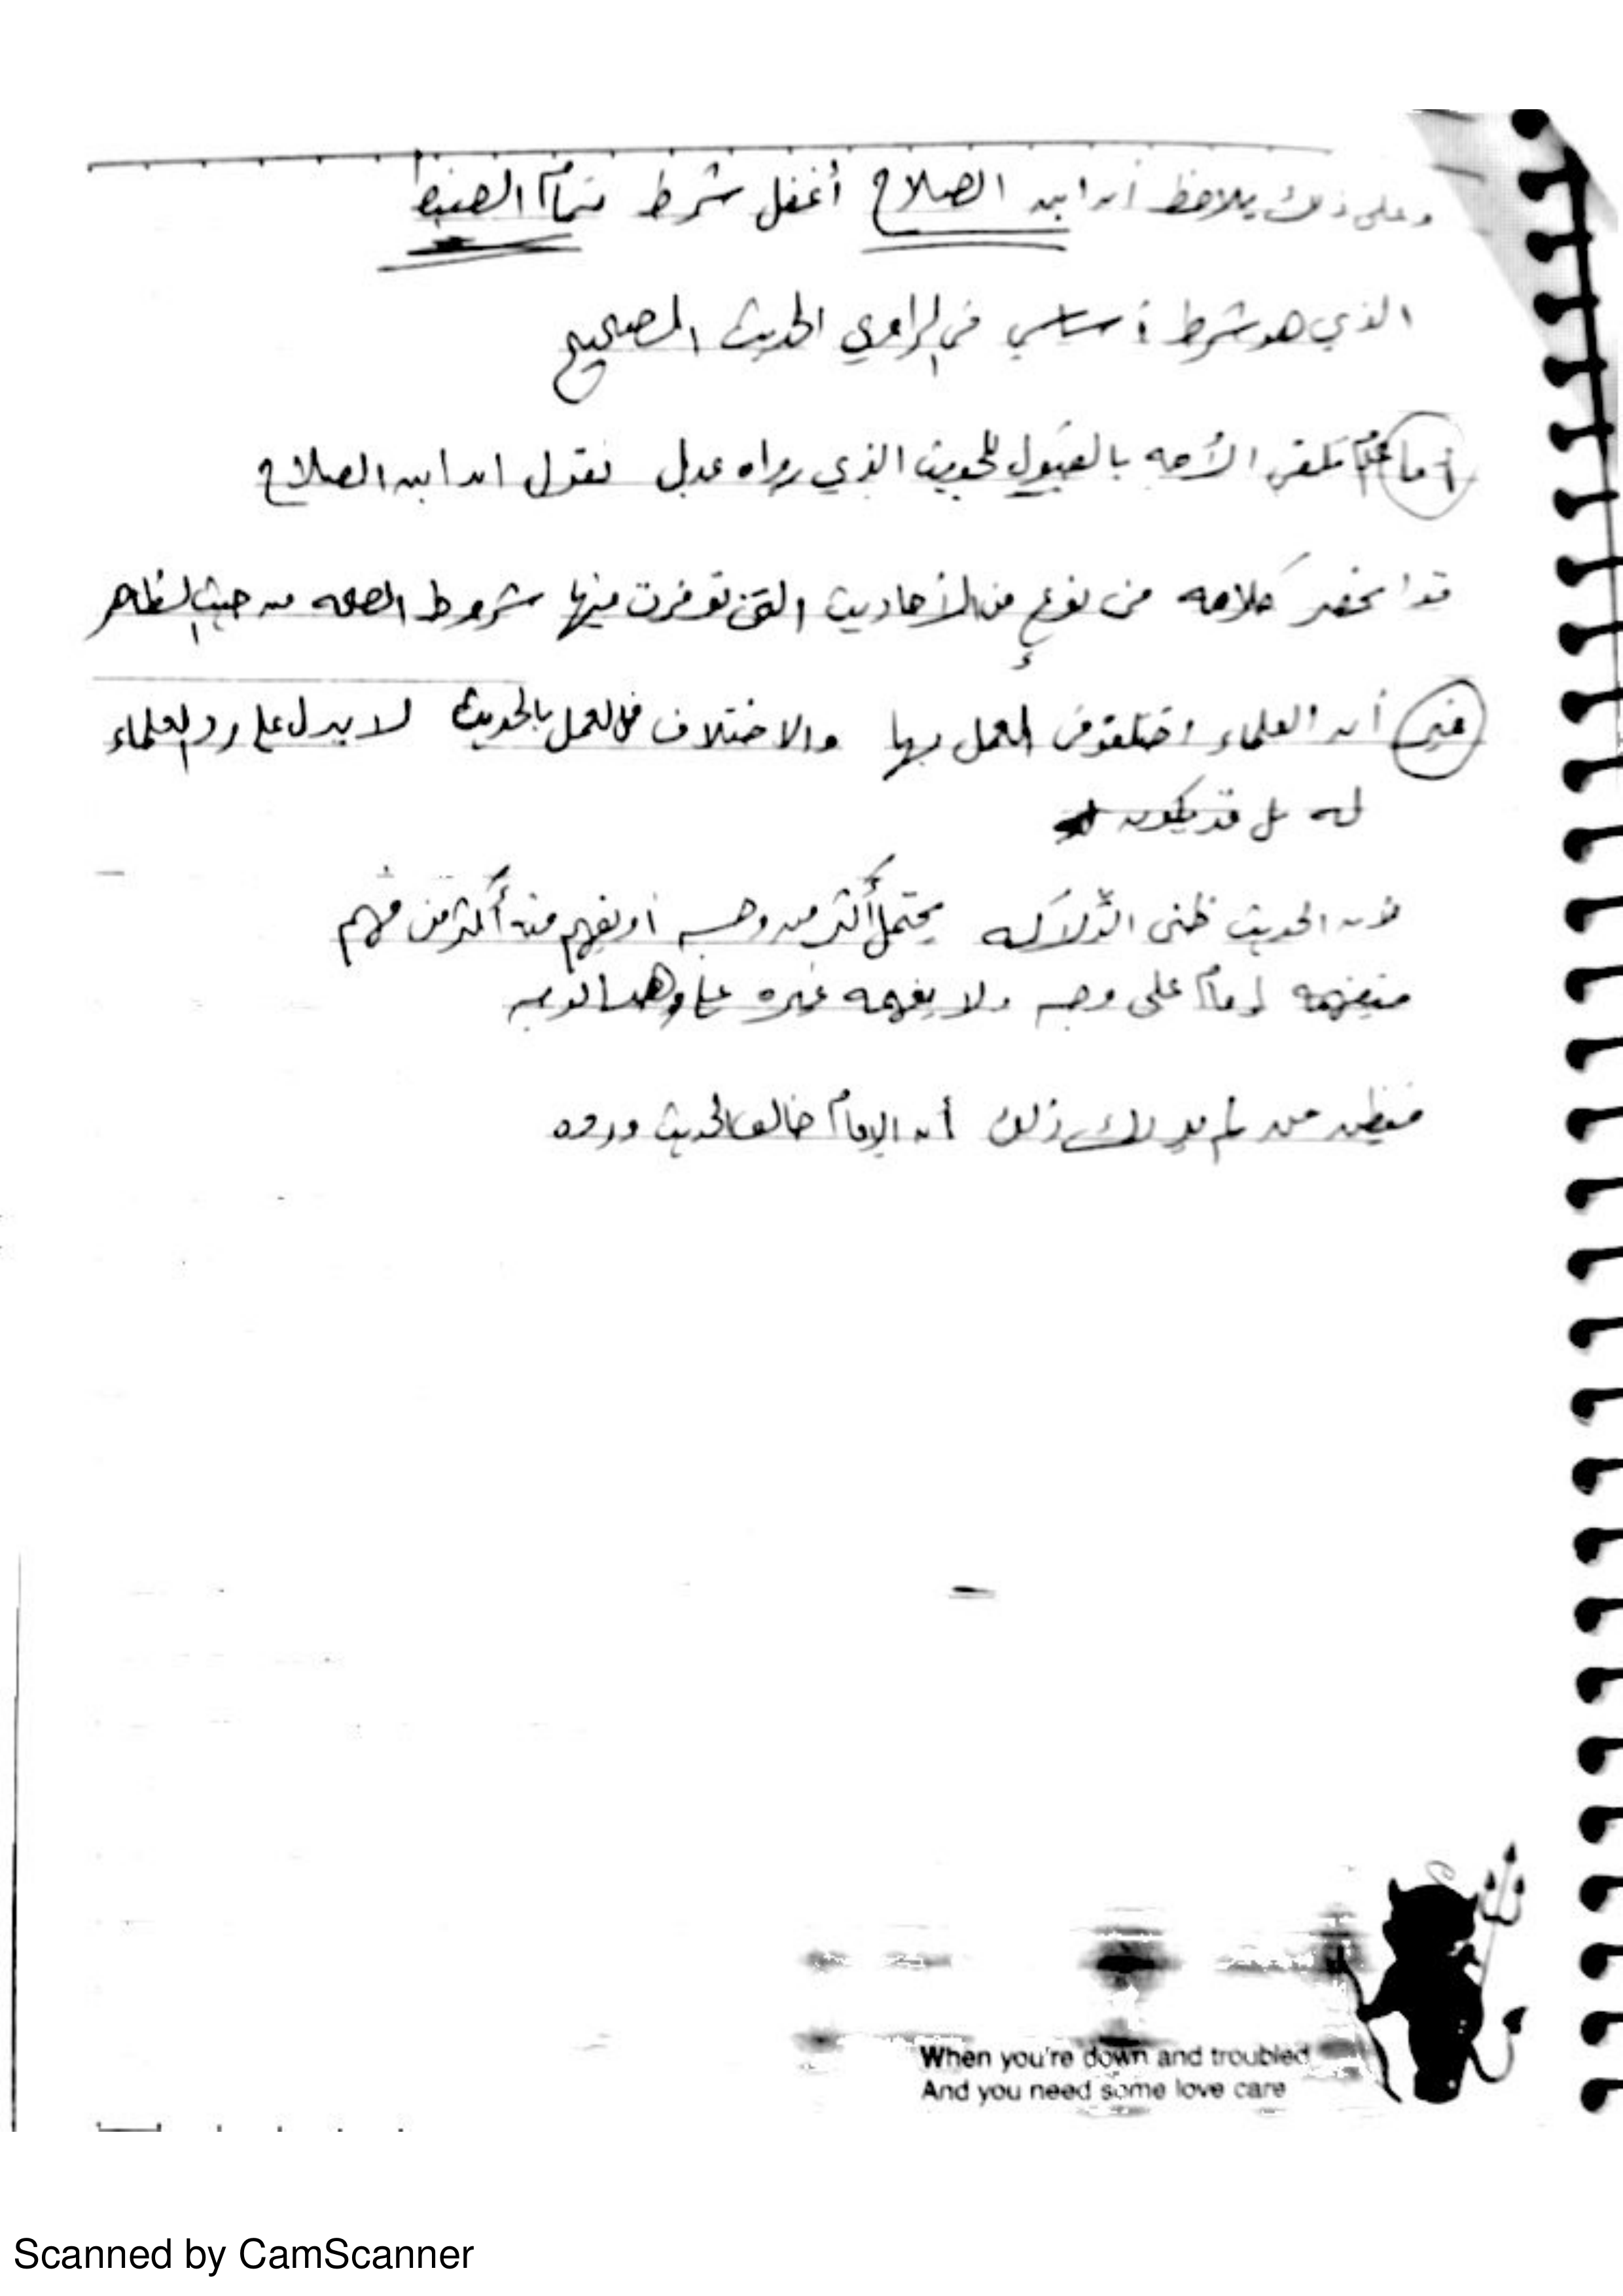 وعلى ذلك يلاحظ أن ابن الصلاح أغفل شرط تمام الضبط
الذي هو شرط أساسي في الراوي الحديث الصحيح
أما عدم تلقي الأمه بالقبول للحديث الذي رواه عدل نقول ان ابن الصلاح
قد انحصر كلامه في نوع من الأحاديث التي توفرت فيها شروط الصحه من حيث الظاهر
غير أن العلماء اختلفو في العمل بها والاختلاف في العمل بالحديث لا يدل على رد العلماء
له بل قد يكون
لأن الحديث ظني الدلاله يحتمل أكثر من وجه أو يفهم منه أكثر من فهم
فيفهمه إمام على وجه ولا يفهمه غيره على هذا الوجه
فيظن من لم يدرك ذلك أن الإمام خالف الحديث ورده
When you're down and troubled
And you need some love care
Scanned by CamScanner